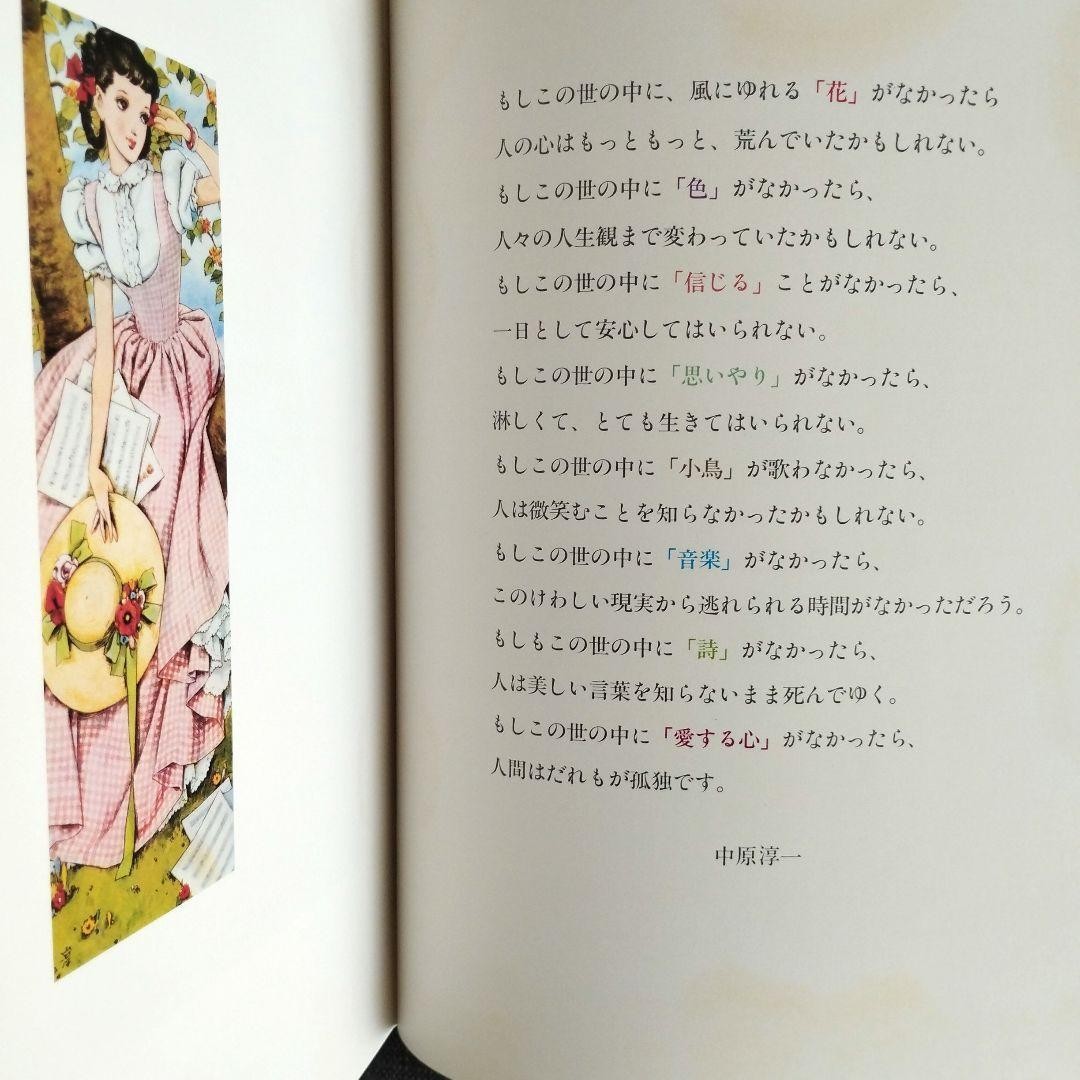 もしこの世の中に、風にゆれる「花」がなかったら
人の心はもっともっと、荒んでいたかもしれない。
もしこの世の中に「色」がなかったら、
人々の人生観まで変わっていたかもしれない。
もしこの世の中に「信じる」ことがなかったら、
一日として安心してはいられない。
もしこの世の中に「思いやり」がなかったら、
淋しくて、とても生きてはいられない。
もしこの世の中に「小鳥」が歌わなかったら、
人は微笑むことを知らなかったかもしれない。
もしこの世の中に「音楽」がなかったら、
このけわしい現実から逃れられる時間がなかっただろう。
もしもこの世の中に「詩」がなかったら、
人は美しい言葉を知らないまま死んでゆく。
もしこの世の中に「愛する心」がなかったら、
人間はだれもが孤独です。
中原淳一